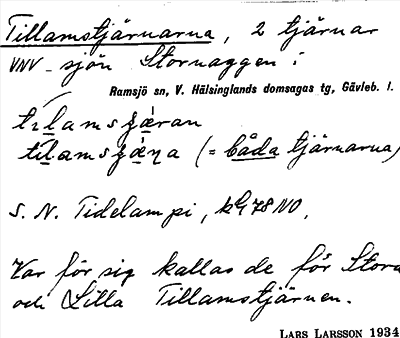 Tillamstjärnarna, 2 tjärnar
VNV sjön Stornaggen i
Ramsjö sn, V. Hälsinglands domsagas tg, Gävleb. l.
(= båda tjärnarna)
S. N. Tidelampi, kbl 78 NO.
Var för sig kallas de för Stora
och Lilla Tillamstjärnen.
LARS LARSSON 1934